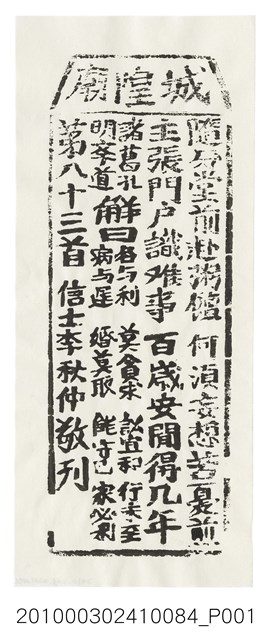 城隍廟
隨分堂前赴粥饘 何須妄想苦憂煎
主張門户識难事 百歲安閒得几年
諸葛孔明奔道 解曰 名与利 莫貪求 訟宜和 行未至
病与遅 婚莫取 能守己 家必利
第八十三首 信士李秋仲敬刋
201000302410084_P001